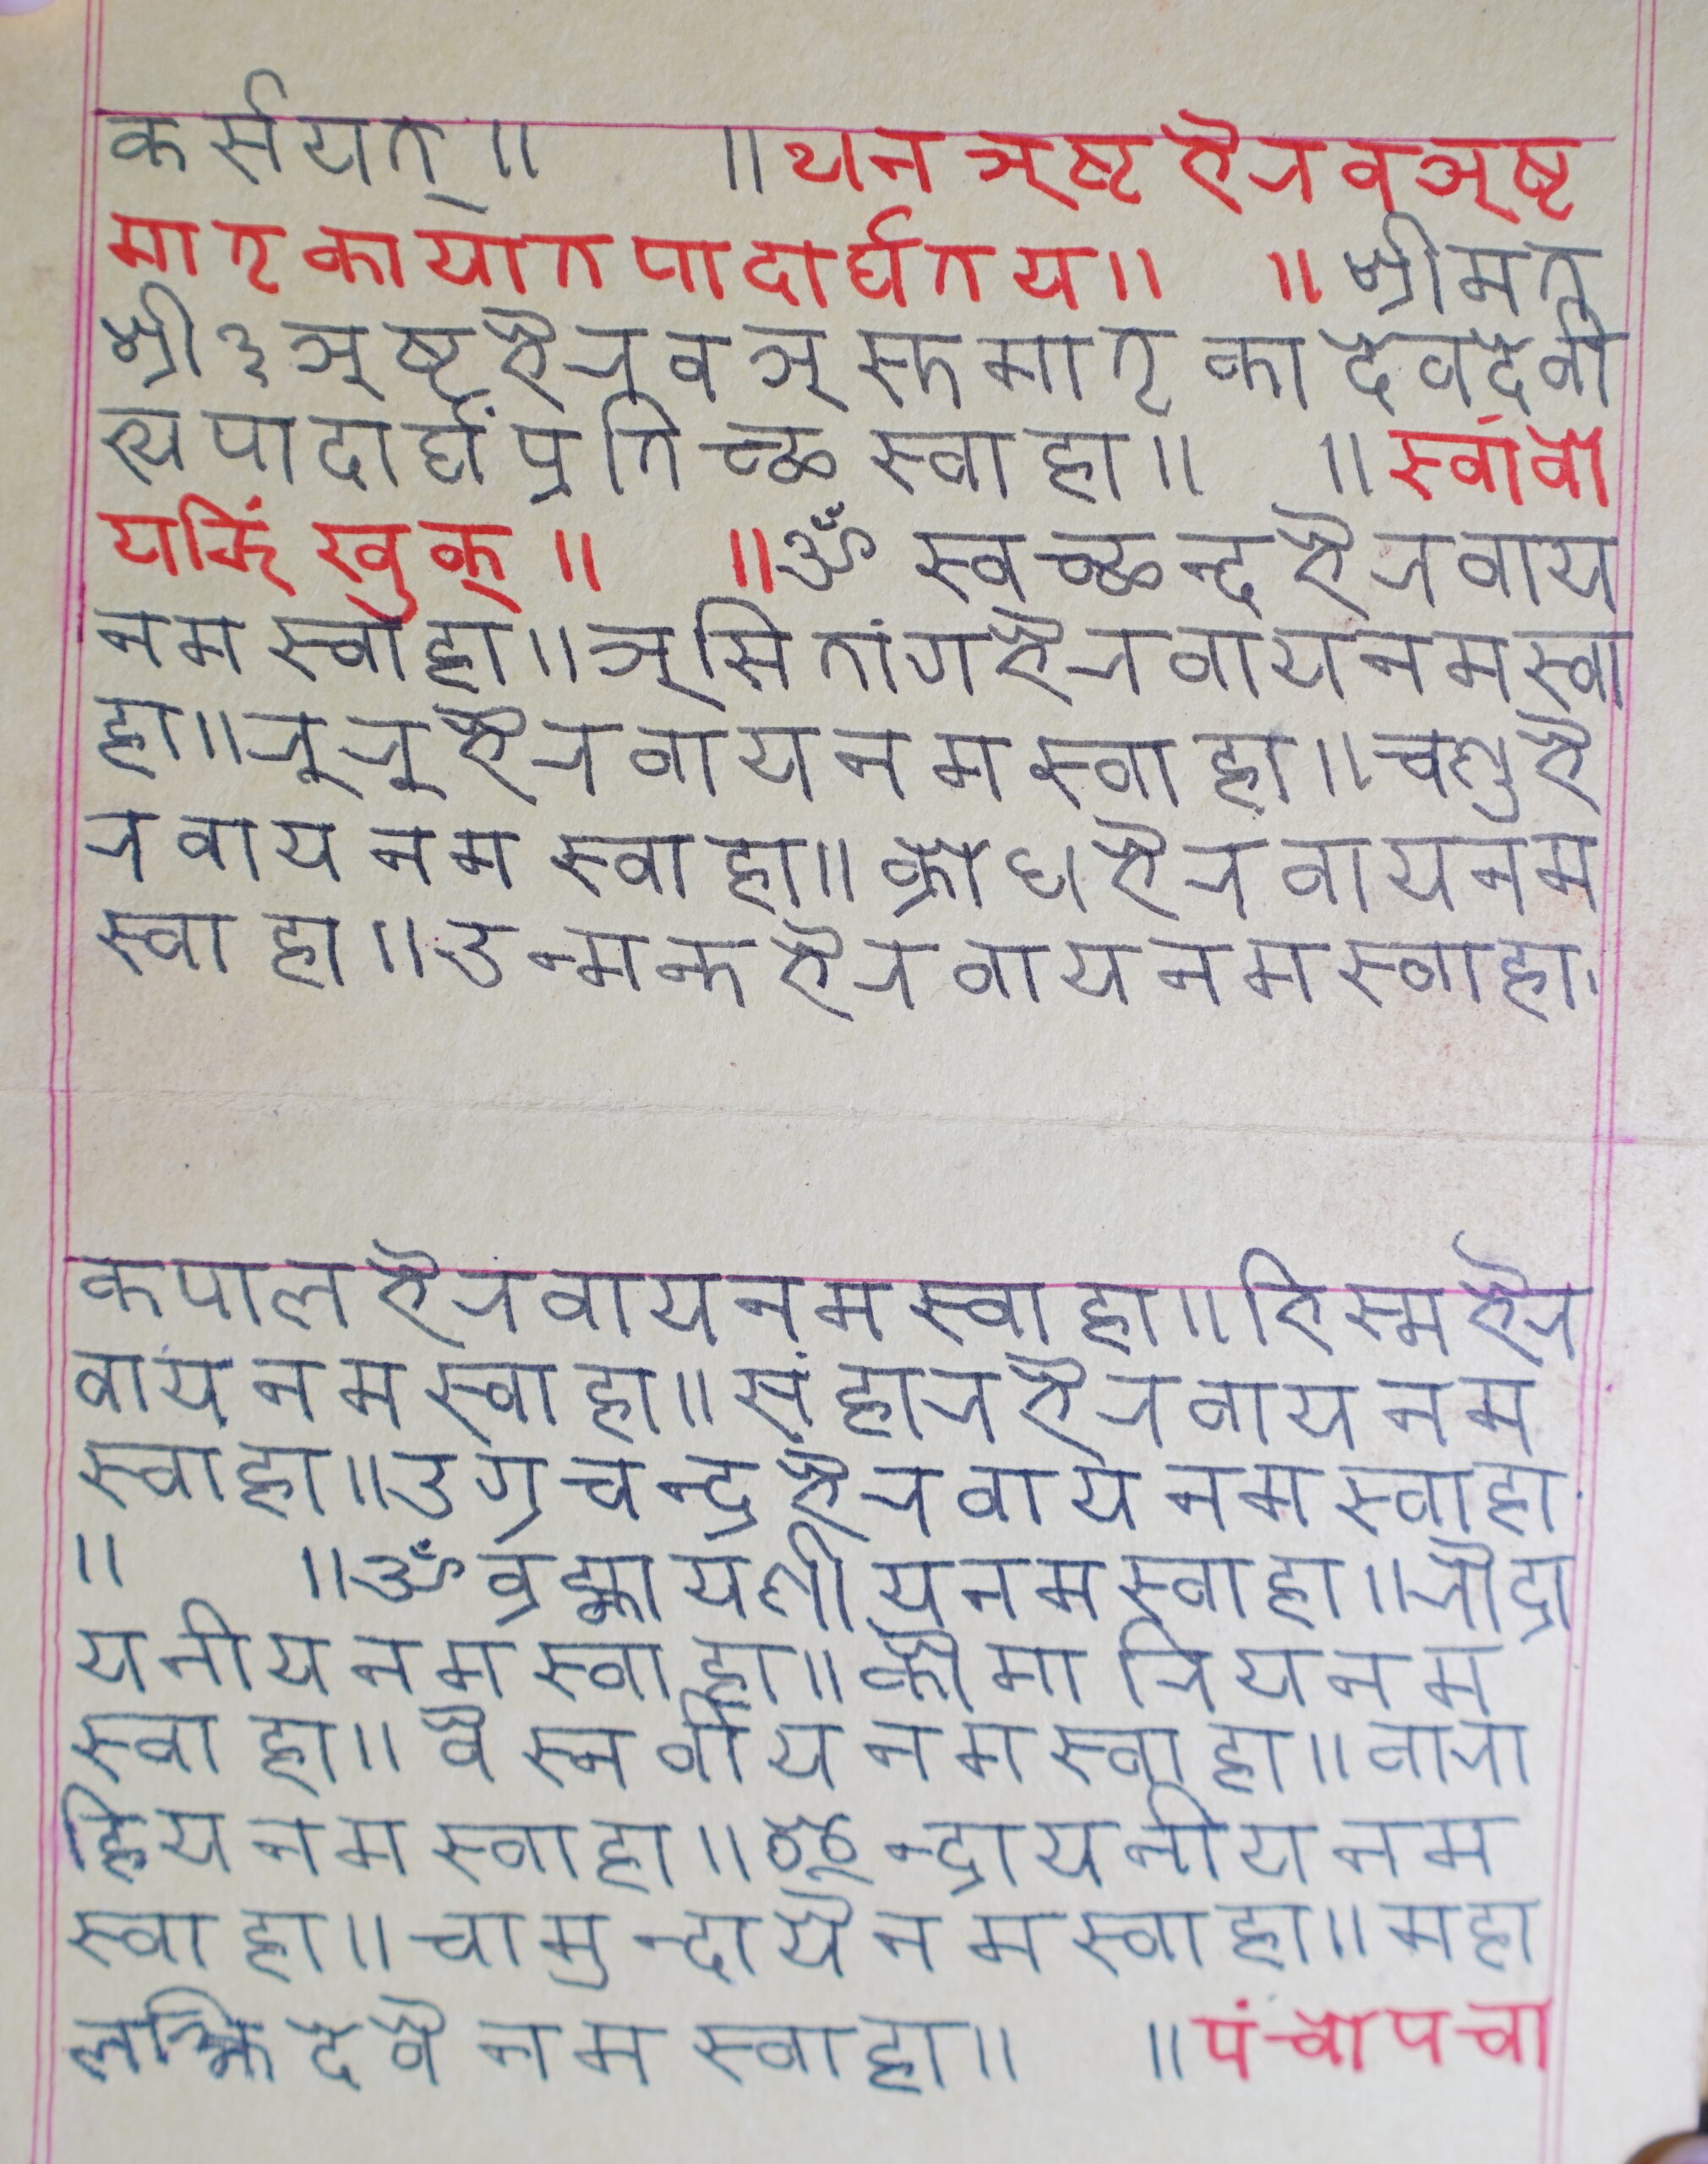 कर्सयत्॥ ॥थन अष्ट भैरव अष्ट
मातृकायात पादार्घतय॥ ॥श्रीमत्
श्री३अष्टभैरव अस्तमातृकादेवदेवी
पादार्घं प्रतिच्छ स्वाहा॥ ॥स्वांवो
॥ ॥ॐ स्वच्छन्दभैरवाय
नमस्वाहा॥असितांगभैरवायनमस्वा
हा॥रूरूभैरवायनमस्वाहा॥चण्दभै
रवायनमस्वाहा॥क्रोधभैरवायनम
स्वाहा॥उन्मत्तभैरवायनमस्वाहा।
कपालभैरवायनमस्वाहा॥भिस्मभैर
वायनमस्वाहा॥संहारभैरवायनम
स्वाहा॥उग्रचन्द्रभैरवायनमस्वाहा
॥ ॥ॐ व्रह्मायणीयनमस्वाहा॥रौद्रा
यनीयनमस्वाहा॥कौमारियनम
स्वाहा॥वैस्नवीयनमस्वाहा॥वारा
हियनमस्वाहा॥इन्द्रायनीयनम
स्वाहा॥चामुन्दायैनमस्वाहा॥महा
लक्ष्मिदेवैनमस्वाहा॥ ॥पंचोपचा